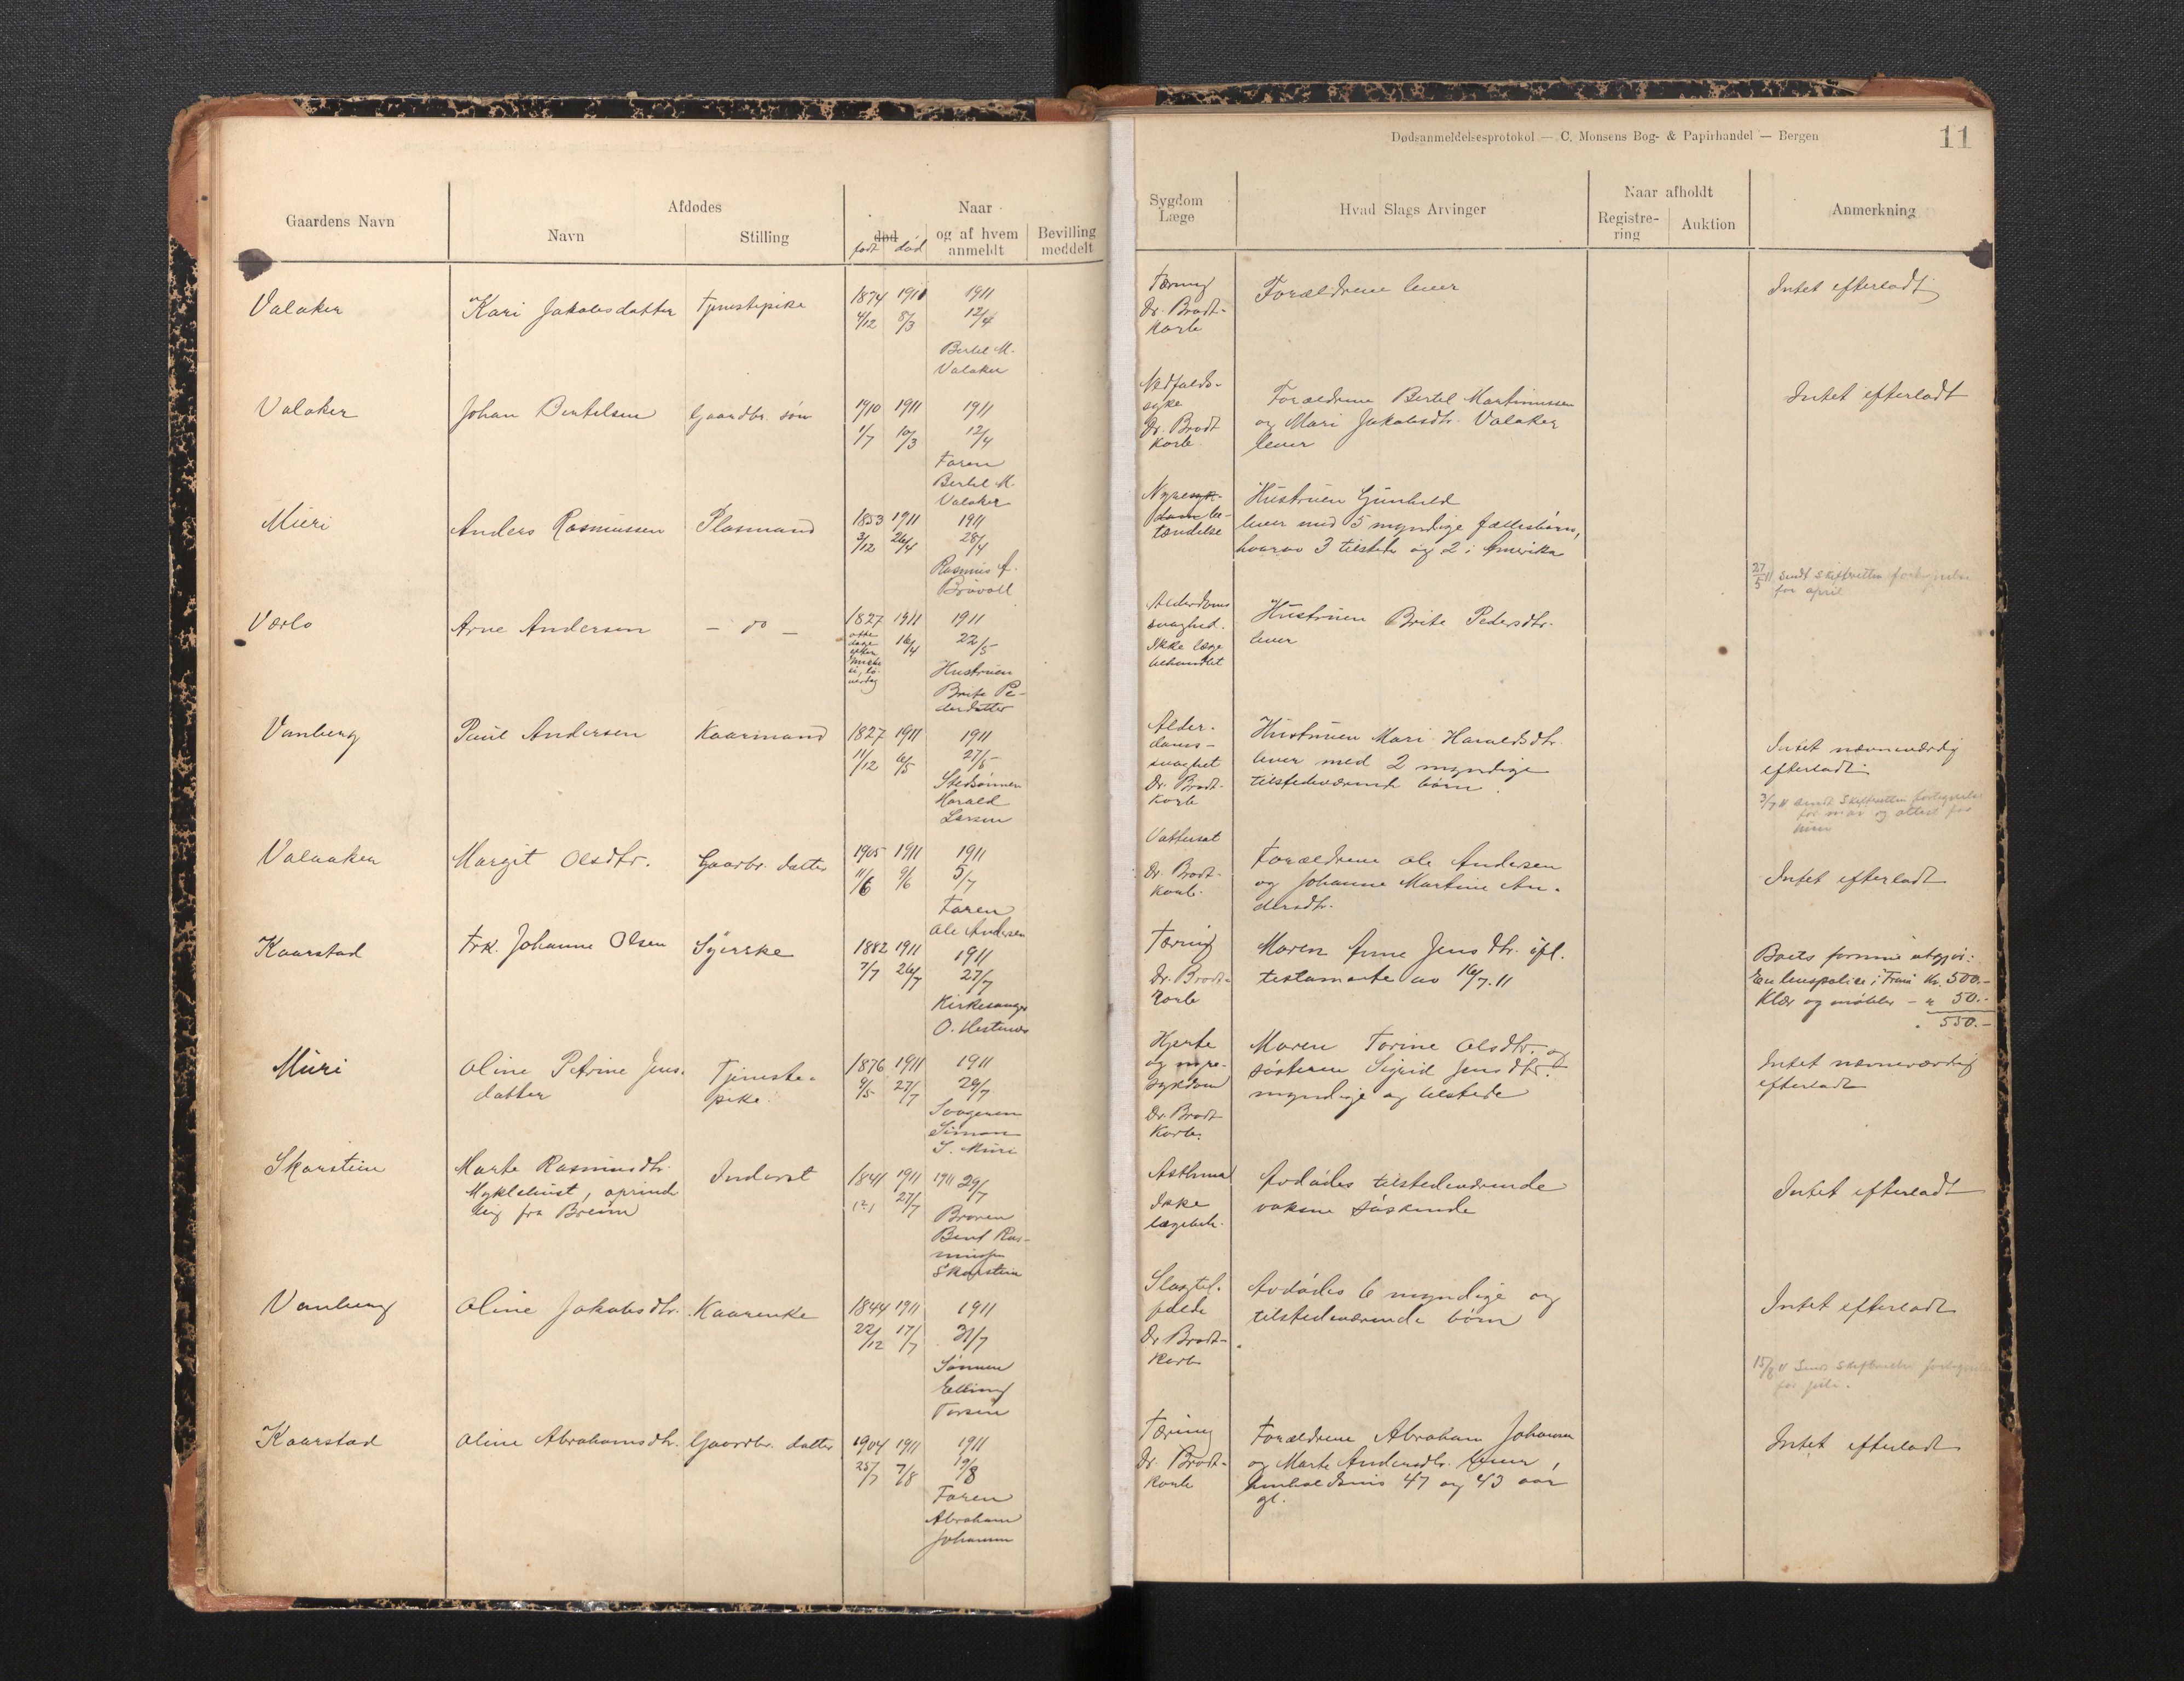 Dødsanmeldelsesprotokol — C. Monsens Bog- & Papirhandel — Bergen
11
Gaardens Navn
Afdødes
Navn
Stilling
Naar
død
født død
og af hvem
anmeldt
Bevilling
meddelt
Sygdom
Læge
Hvad Slags Arvinger
Naar afholdt
Registre-
ring
Auktion
Anmerkning
Valaker
Kari Jakobsdatter
Tjenestepike
1874 1911 1911
4/12 8/3 12/4
Bertel M.
Valaker
Tæring
Dr. Brodt-
korb
Forældrene lever
Intet efterladt
Valaker
Johan Bertelsen
Gaardbr. søn
1910 1911 1911
1/7 10/3 12/4
Faren
Bertel M.
Valaker
Nedfalds-
syke
Dr. Brodt
korb
Forældrene Bertel Martinussen
og Mari Jakobsdtr. Valaker
lever
Intet efterladt
Muri
Anders Rasmussen
Plasmand
1853 1911 1911
3/12 26/4 28/4
Rasmus A.
Brøvoll
Nyresyk-
dom be-
tændelse
Hustruen Gunhild
lever med 5 myndige fællesbørn,
hvorav 3 tilstede og 2 i Amerika
27/5 11 Sendt Skifteretten fortegnelse
for april
Værlo
Arne Andersen
— do —
1827 1911 1911
16/4 22/5
Hustruen
Brite Pe-
dersdatter
Alderdoms
svaghed.
Ikke læge
behandlet
Hustruen Brite Pedersdtr.
lever
Vanberg
Paul Andersen
Kaarmand
1827 1911 1911
11/12 6/5 27/5
Stedsønnen
Harald
Larsen
Alder-
doms-
svaghet
Dr. Brodt-
korb
Hustruen Mari Haraldsdtr.
lever med 2 myndige
tilstedeværende børn.
Intet nævneværdig
efterladt
3/7 11 sendt Skifteretten fortegnelse
for mai og attest for
juni
Valaaker
Margit Olsdtr.
Gaardbr. datter
1905 1911 1911
11/6 9/6 5/7
Faren
Ole Andersen
Vattersot
Dr. Brodt-
korb.
Forældrene Ole Andersen
og Johanne Martine An-
dersdtr.
Intet efterladt
Kaarstad
Frk. Johanne Olsen
Syerske
1882 1911 1911
7/7 26/7 27/7
Kirkesanger
O. Hestenes
Tæring
Dr. Brodt-
korb
Maren Anne Jensdtr. ifl.
testamente av 16/7.11
Boets formue utgjør:
En livspolice i Fram Kr. 500.-
Klær og møbler - " 50.-
550.-
Muri
Oline Petrine Jens-
datter
Tjeneste-
pike
1876 1911 1911
9/5 27/7 29/7
Svogeren
Simon
S. Muri
Hjerte
og nyre-
sykdom
Dr. Brodt
korb.
Moren Torine Olsdtr. og
søsteren Sigrid Jensdtr.
myndige og tilstede
Intet nævneværdig
efterladt
Skarstein
Marte Rasmusdtr.
Myklebust, oprinde
lig fra Breim
Inderst
1841 1911 1911 29/7
(?) 27/7
Broren
Bent Ras-
mussen
Skarstein
Asthma
Ikke
lægebeh.
Avdødes tilstedeværende
voksne søskende
Intet efterladt
Vanberg
Oline Jakobsdtr.
Kaarenke
1844 1911 1911
22/12 17/7 31/7
Sønnen
Elling
Slagtil-
fælde
Dr. Brodt-
korb
Avdødes 6 myndige og
tilstedeværende børn
Intet efterladt
15/8 11 Sendt Skifteretten fortegnelse
for juli.
Kaarstad
Oline Abrahamsdtr.
Gaardbr. datter
1904 1911 1911
25/7 7/8 19/8
Faren
Abraham
Johansen
Tæring
Dr. Brodt-
korb
Forældrene Abraham Johansen
og Marte Andersdtr. lever,
henholdsvis 47 og 43 aar
gl.
Intet efterladt